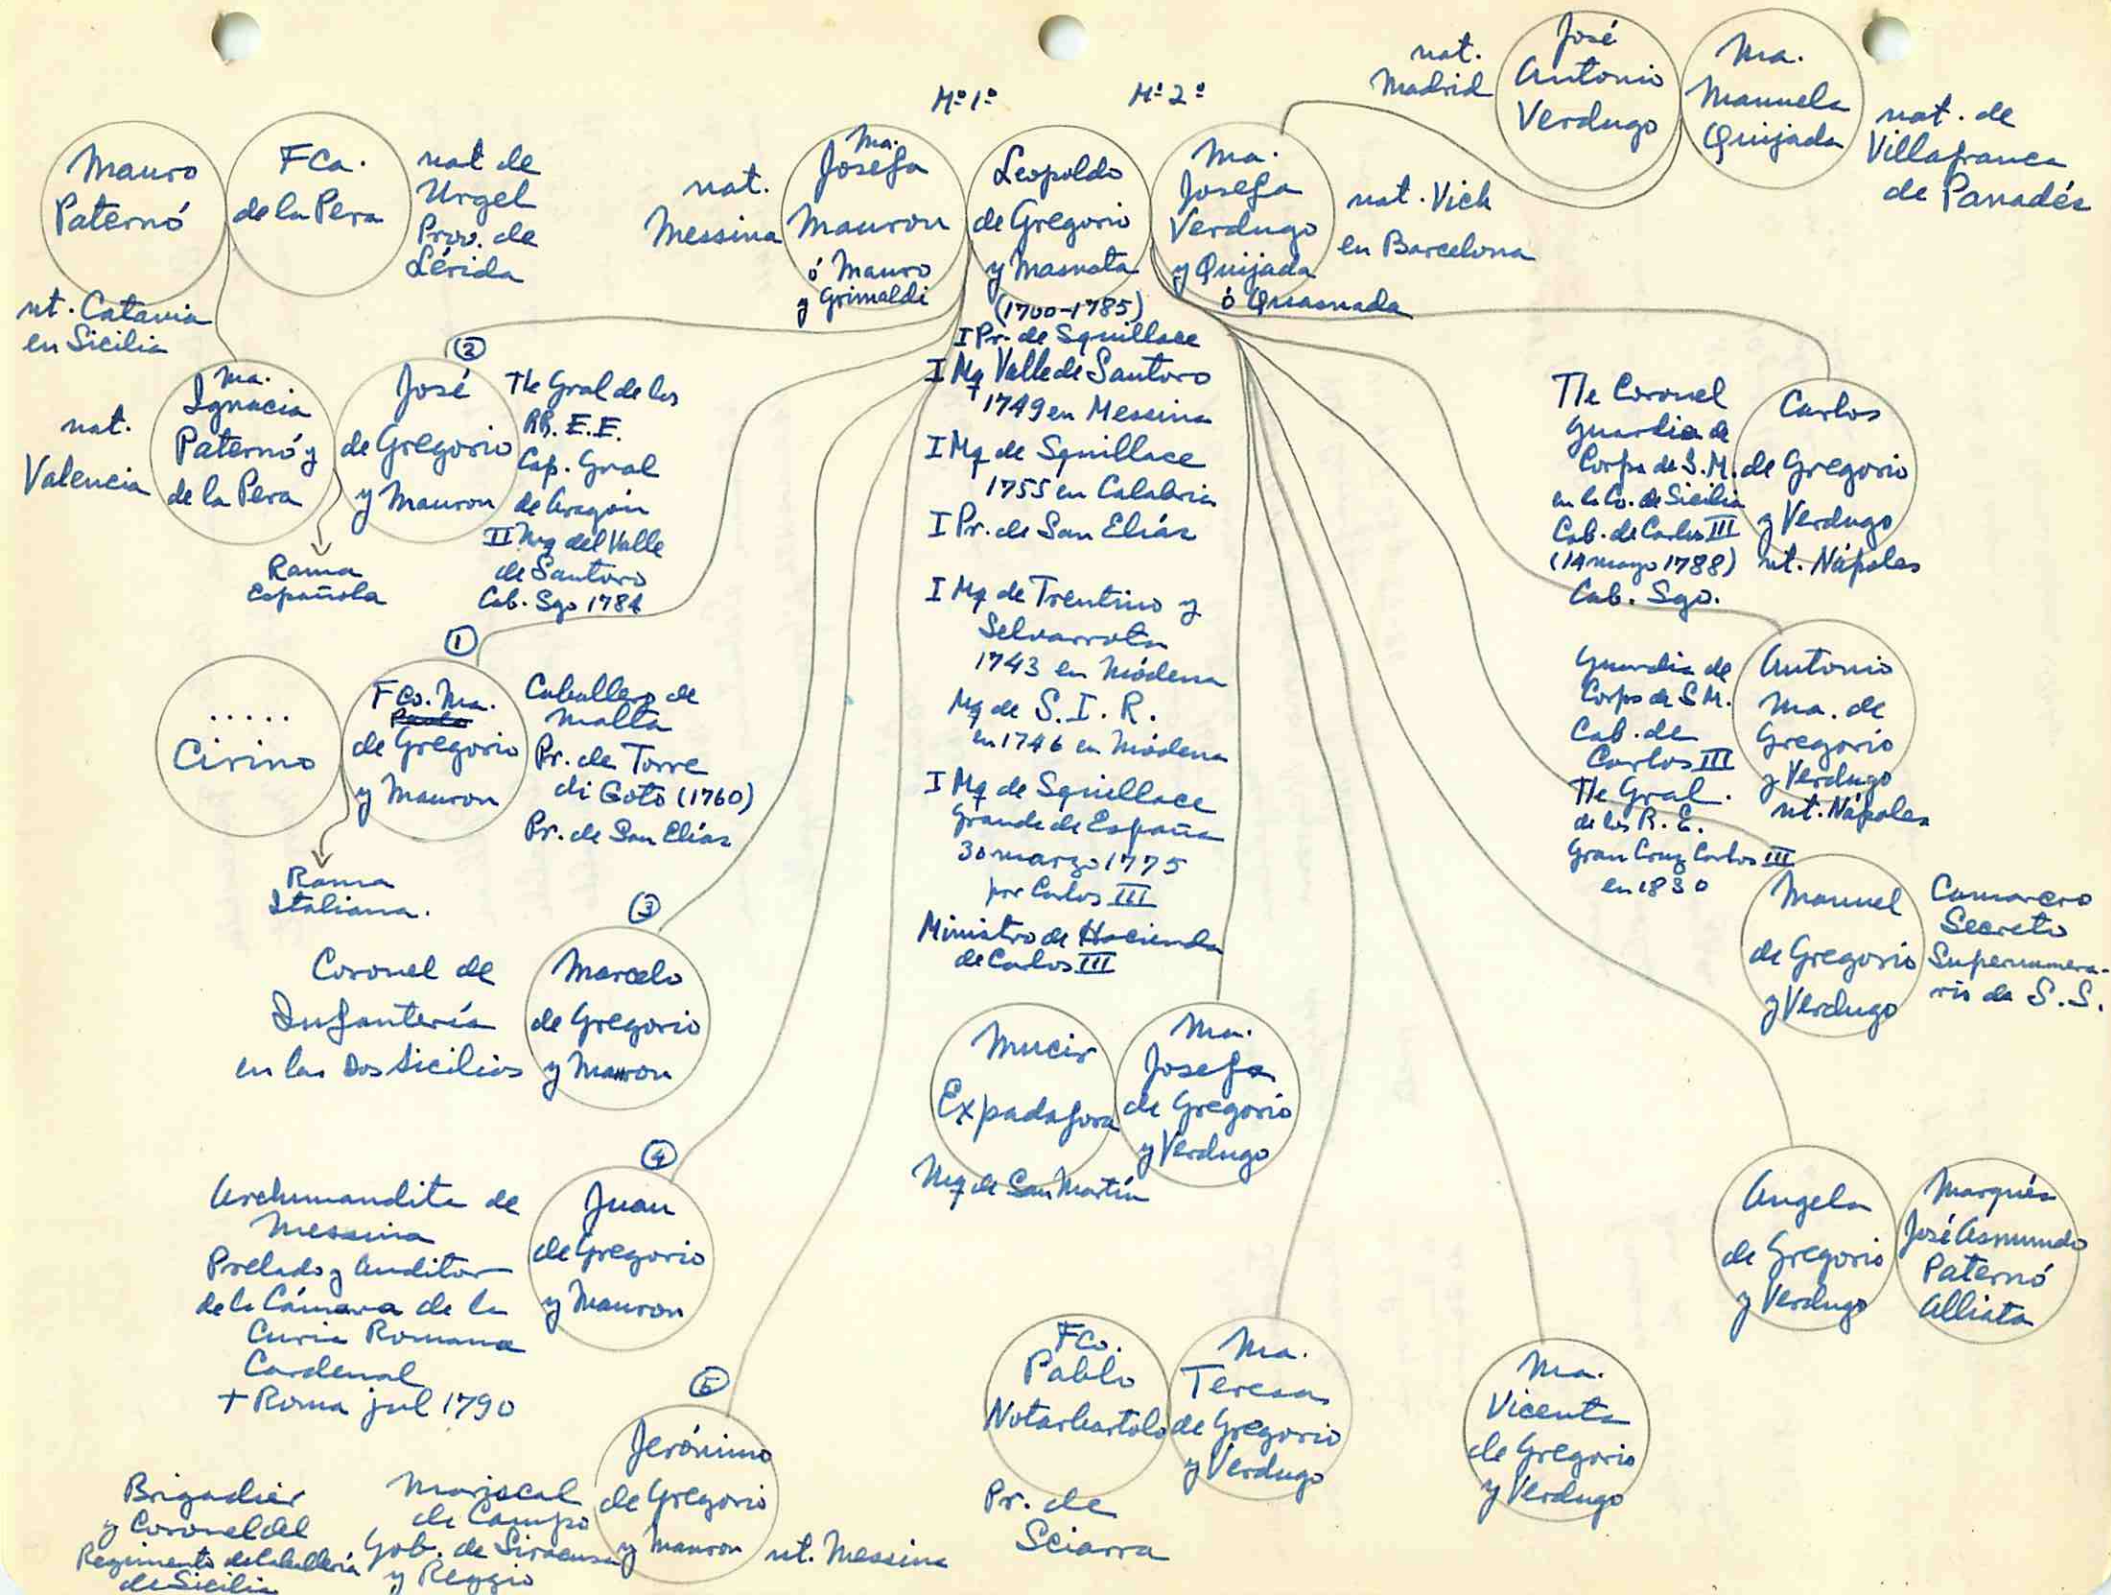 Mº 1º
Mº 2º
nat.
Madrid
José
Antonio
Verdugo
Ma.
Manuela
Quijada
nat. de
Villafranca
de Panadés
Mauro
Paternó
nt. Catania
en Sicilia
Fca.
de la Pera
nat de
Urgel
Prov. de
Lérida
nat.
Messina
Ma.
Josefa
Mauron
ó Mauro
y Grimaldi
Leopoldo
de Gregorio
y Masnata
(1700-1785)
I Pr. de Squillace
I Mq Valle de Santoro
1749 en Messina
I Mq de Squillace
1755 en Calabria
I Pr. de San Elías
I Mq de Trentino y
Selvarrota
1743 en Módena
Mq de S. I. R.
en 1746 en Módena
I Mq de Squillace
Grande de España
30 marzo 1775
por Carlos III
Ministro de Hacienda
de Carlos III
Ma.
Josefa
Verdugo
y Quijada
ó Quasnada
nat. Vich
en Barcelona
nat.
Valencia
Ma.
Ignacia
Paternó y
de la Pera
2
José
de Gregorio
y Mauron
Tte Gral de los
RR. E.E.
Cap. Gral
de Aragón
II Mq del Valle
de Santoro
Cab. Sgo 1784
Rama
Española
1
.....
Cirino
Fco. Ma.
Paolo
de Gregorio
y Mauron
Caballero de
Malta
Pr. de Torre
di Goto (1760)
Pr. de San Elías
Rama
Italiana.
3
Coronel de
Infantería
en las Dos Sicilias
Marcelo
de Gregorio
y Mauron
4
Archimandita de
Messina
Prelado y Auditor
de la Cámara de la
Curia Romana
Cardenal
+ Roma jul 1790
Juan
de Gregorio
y Mauron
5
Brigadier
y Coronel del
Regimento de Caballería
de Sicilia
Mariscal
de Campo
Gob. de Siracusa
y Reggio
Jerónimo
de Gregorio
y Mauron
nt. Messina
Tte Coronel
Guardia de
Corps de S. M.
en la Co. de Sicilia
Cab. de Carlos III
(14 mayo 1788)
Cab. Sgo.
Carlos
de Gregorio
y Verdugo
nt. Nápoles
Guardia de
Corps de S M.
Cab. de
Carlos III
Tte Gral.
de los R. E.
Gran Cruz Carlos III
en 1830
Antonio
Ma. de
Gregorio
y Verdugo
nt. Nápoles
Manuel
de Gregorio
y Verdugo
Camarero
Secreto
Supernumera-
rio de S. S.
Mucio
Expadafora
Mq de San Martín
Ma.
Josefa
de Gregorio
y Verdugo
Angela
de Gregorio
y Verdugo
Marqués
José Asmundo
Paternó
Alliata
Fco.
Pablo
Notarbartolo
Pr. de
Sciarra
Ma.
Teresa
de Gregorio
y Verdugo
Ma.
Vicenta
de Gregorio
y Verdugo